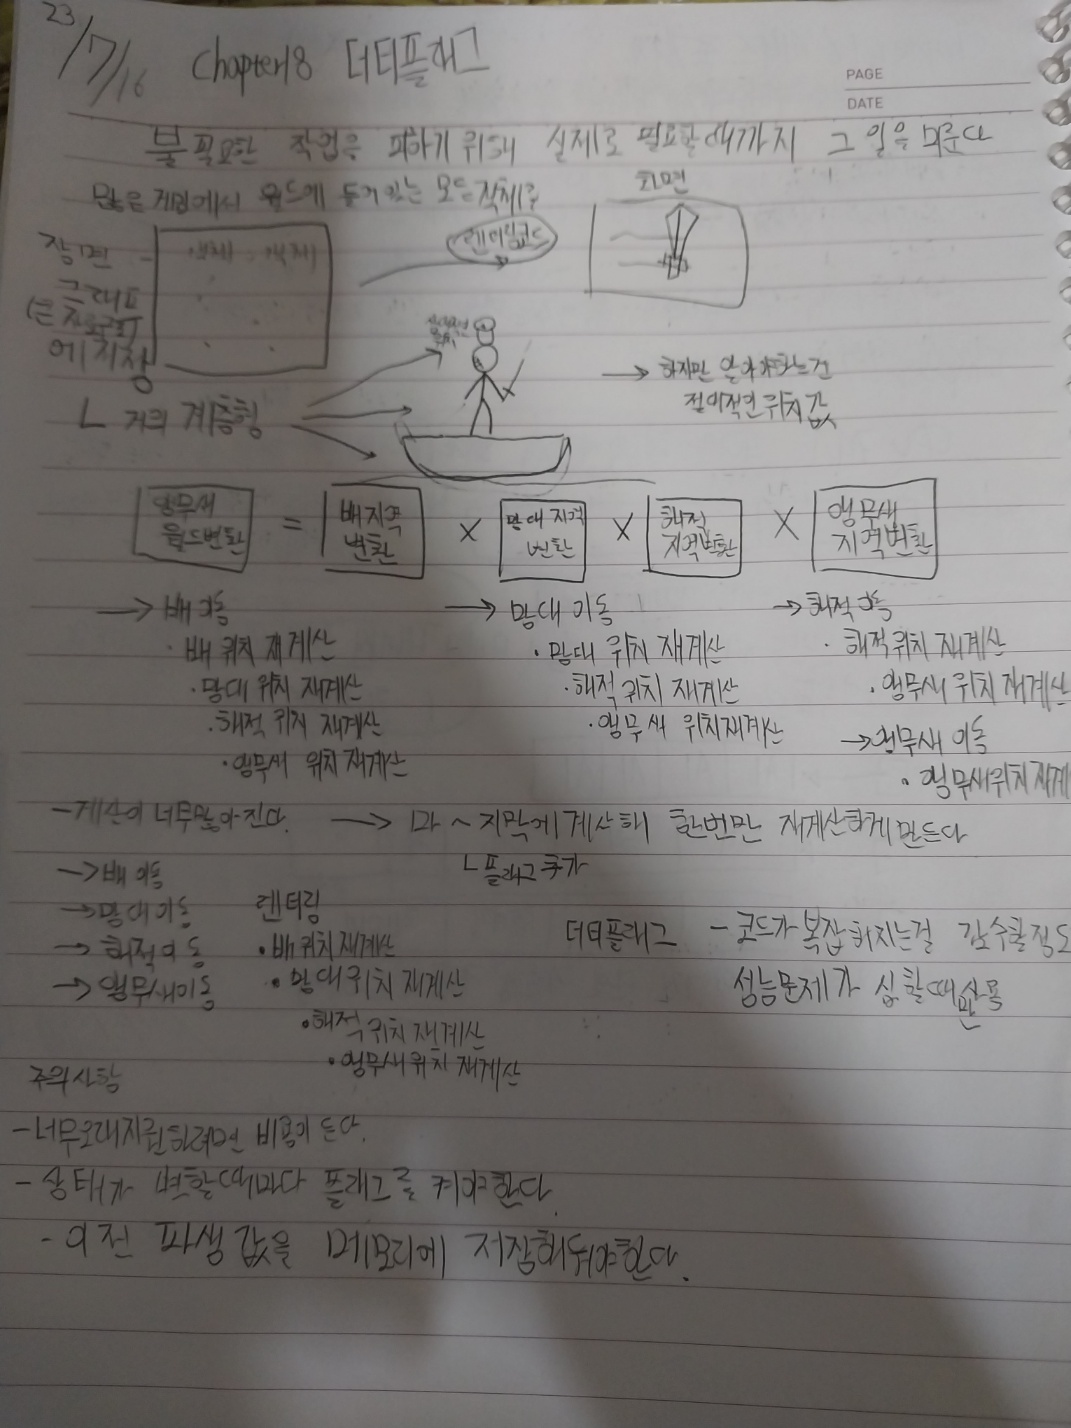 23/7/16 Chapter18 더티플래그
PAGE
DATE
불필요한 작업을 피하기 위해 실제로 필요할때까지 그 일을 미룬다
많은 게임에서 월드에 들어있는 모든 객체를
장면
그래프
에 저장
객체 객체
렌더링코드
화면
ㄴ 거의 계층형
→ 하지만 알아야하는건
위치값
앵무새 월드변환 = 배지역 변환 × 망대 지역 변환 × 해적 지역변환 × 앵무새 지역변환
→ 배 이동
· 배 위치 재계산
· 망대 위치 재계산
· 해적 위치 재계산
· 앵무새 위치 재계산
→ 망대 이동
· 망대 위치 재계산
· 해적 위치 재계산
· 앵무새 위치재계산
→ 해적 이동
· 해적위치 재계산
· 앵무새 위치 재계산
→ 앵무새 이동
· 앵무새위치 재계
- 계산이 너무많아진다. → 마~지막에 계산해 한번만 재계산하게 만든다
ㄴ 플래그 추가
→ 배 이동
→ 망대이동
→ 해적이동
→ 앵무새이동
렌터링
· 배위치재계산
· 망대위치 재계산
· 해적위치 재계산
· 앵무새위치 재계산
더티플래그 - 코드가 복잡해지는걸 감수할정도
성능문제가 심할때만
주의사항
- 너무오래지연하려면 비용이 든다.
- 상태가 변할때마다 플래그를 켜야한다.
- 이전 파생값을 메모리에 저장해둬야한다.